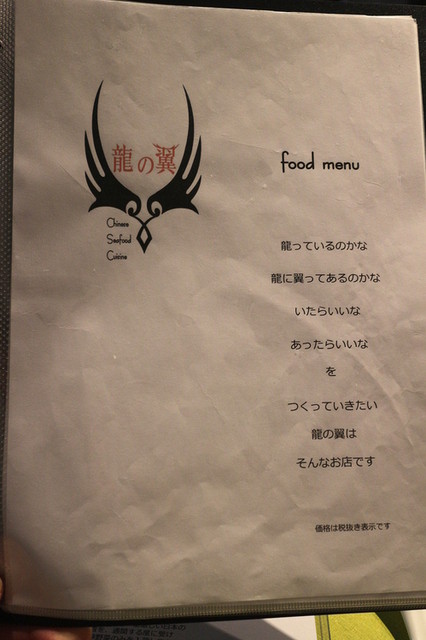 龍の翼
Chinese
Seafood
Cuisine
food menu
龍っているのかな
龍に翼ってあるのかな
いたらいいな
あったらいいな
を
つくっていきたい
龍の翼は
そんなお店です
価格は税抜き表示です